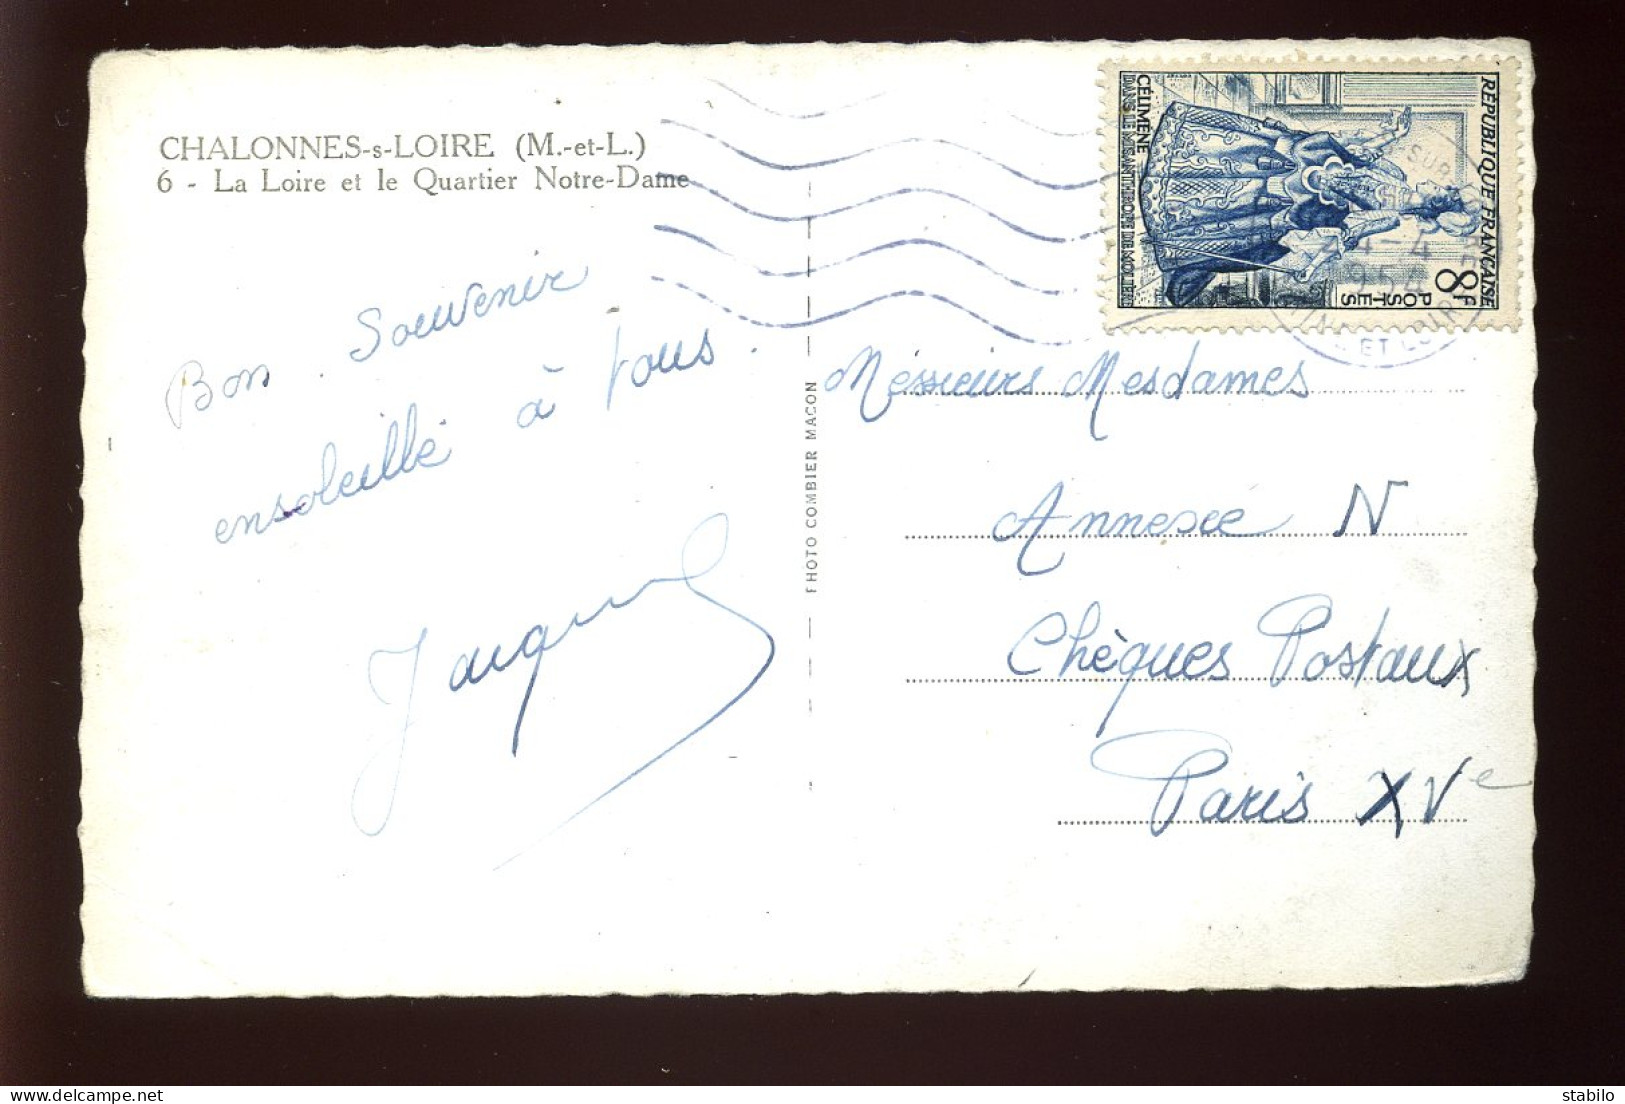 CHALONNES-s-LOIRE (M.-et-L.)
6 - La Loire et le Quartier Notre-Dame
Bon Souvenir
ensoleillé à tous.
Jacques
PHOTO COMBIER MACON
RÉPUBLIQUE FRANÇAISE
8F
POSTES
CÉLIMÈNE
DANS LE MISANTHROPE DE MOLIÈRE
-SUR-
4-4
1954
ET LOIRE
Méssieurs Mesdames
Annexe N
Chèques Postaux
Paris XVe
delcampe.net
stabilo